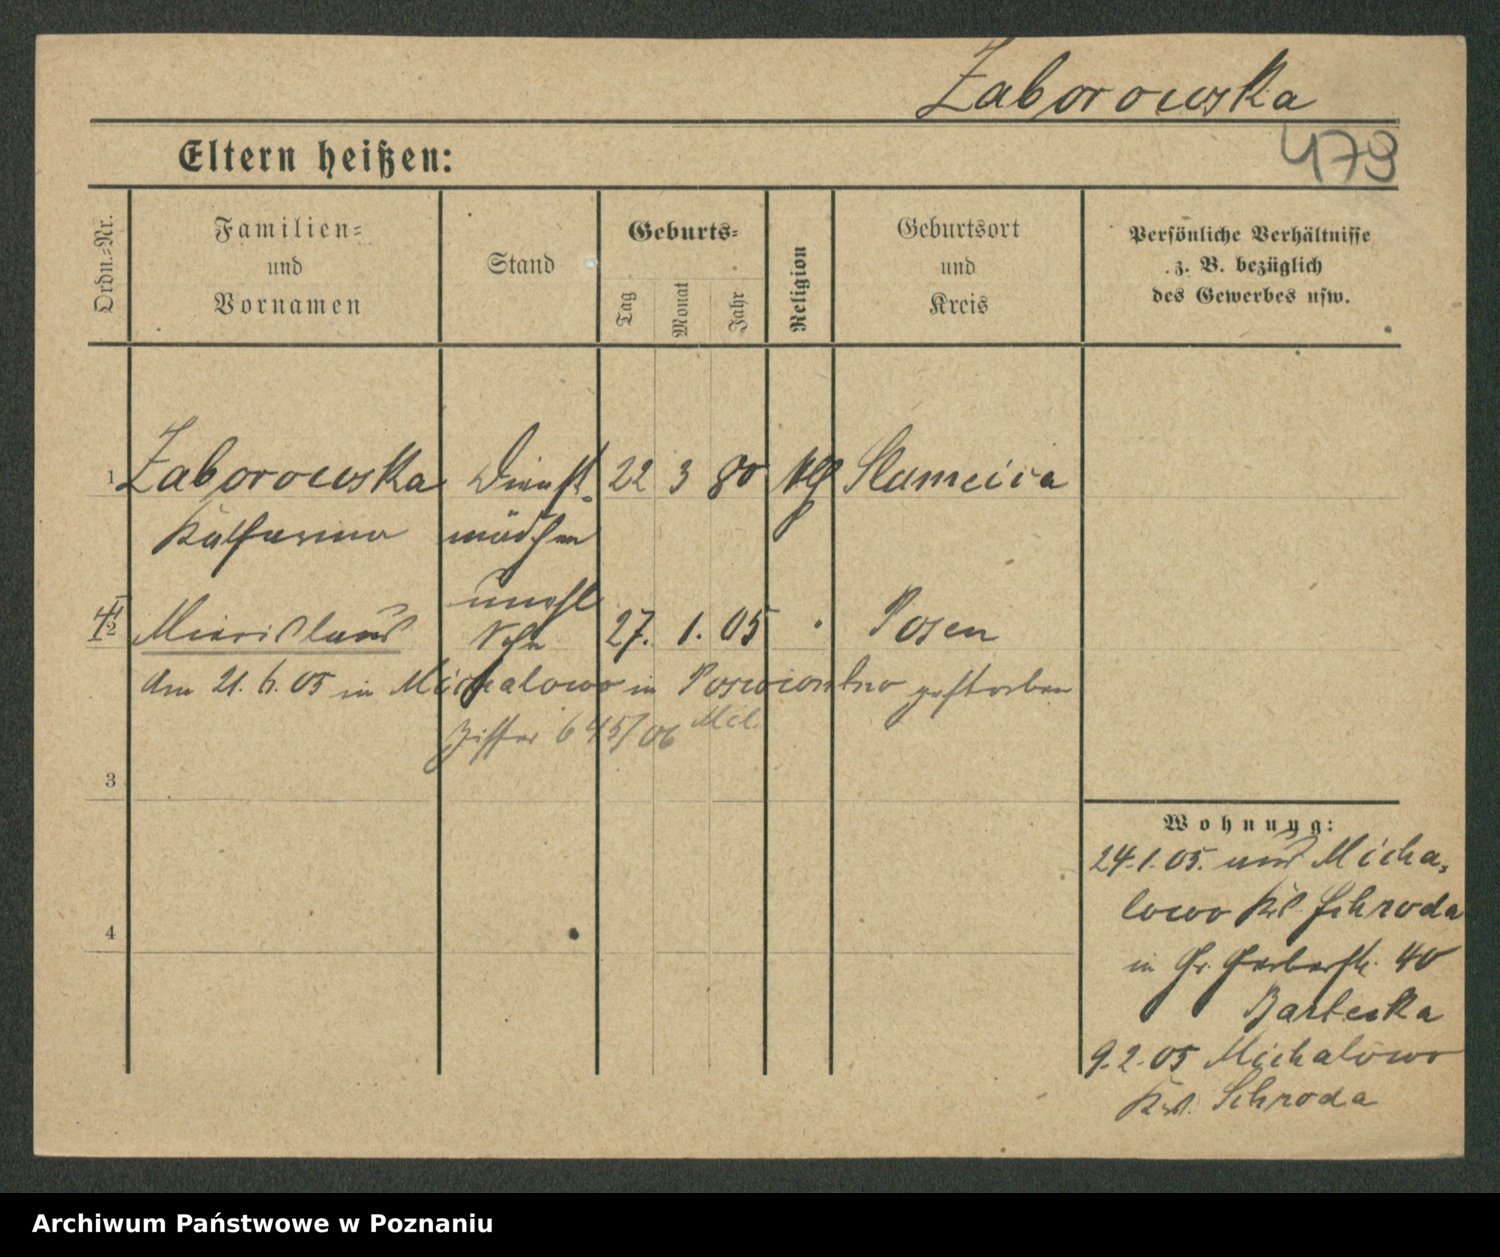 Zaborowska
479
Eltern heißen:
Ordn.-Nr.
Familien-
und
Vornamen
Stand
Geburts-
Tag
Monat
Jahr
Religion
Geburtsort
und
Kreis
Persönliche Verhältnisse
z. B. bezüglich
des Gewerbes usw.
1 Zaborowska Dienst- 22 3 80 Slameiia
Katharina mädchen
unehl
2 Sohn 27. 1. 05 Posen
am 21. 6. 05 in Michalowo in gestorben
Ziffer 645/06 Mil.
3
4
Wohnung:
24.1.05. aus Micha-
lowo Krs. Schroda
in Gr. Gerberstr. 40
Barteska
9.2.05 Michalowo
Krs. Schroda
Archiwum Państwowe w Poznaniu